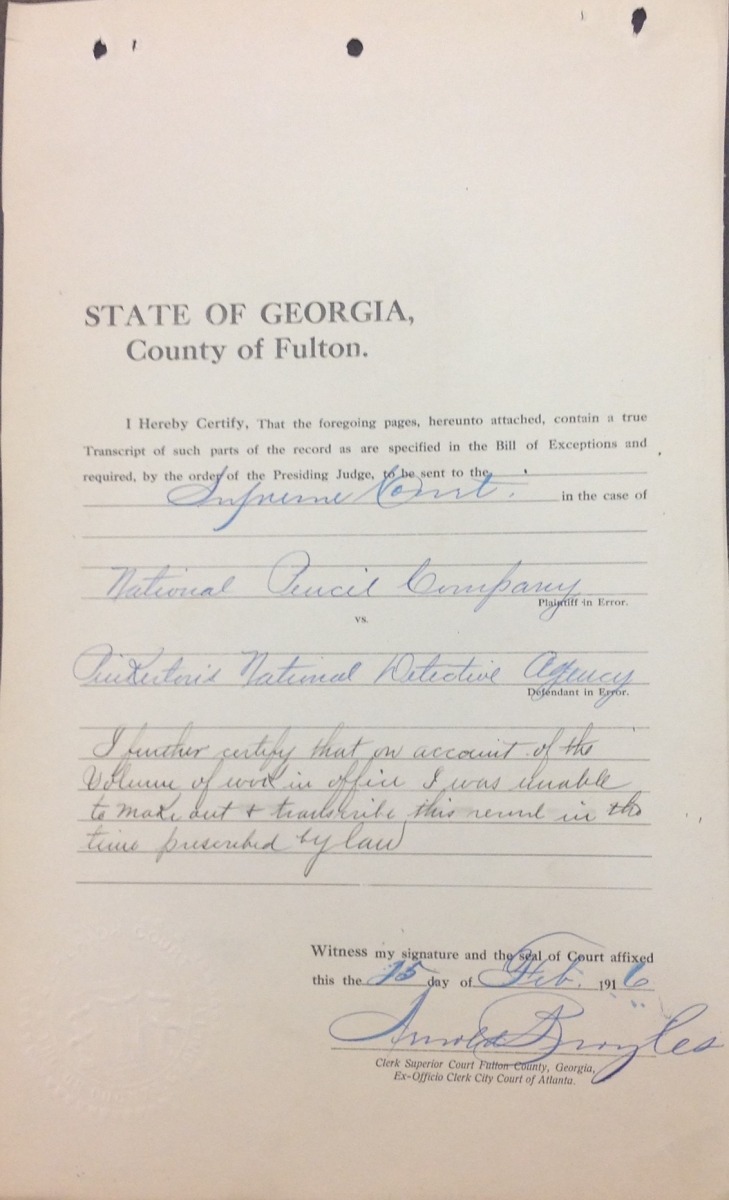 STATE OF GEORGIA,
County of Fulton.
I Hereby Certify, That the foregoing pages, hereunto attached, contain a true
Transcript of such parts of the record as are specified in the Bill of Exceptions and
required, by the order of the Presiding Judge, to be sent to the
Supreme Court. in the case of
National Pencil Company
Plaintiff in Error.
vs.
Pinkerton's National Detective Agency
Defendant in Error.
I further certify that on account of the
Volume of work in office I was unable
to make out & transcribe this record in the
time prescribed by law
Witness my signature and the seal of Court affixed
this the 15 day of Feb. 1916
Arnold Broyles
Clerk Superior Court Fulton County, Georgia,
Ex-Officio Clerk City Court of Atlanta.